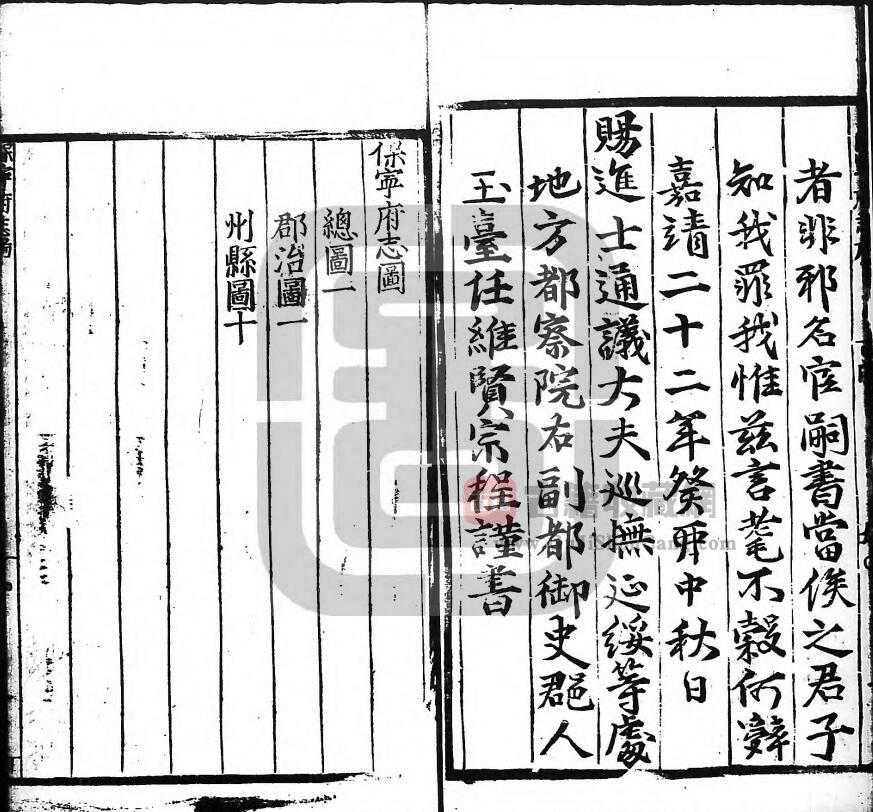 者非邪名宦嗣書當俟之君子
知我罪我惟兹言耄不穀何辭
嘉靖二十二年癸卯中秋日
賜進士通議大夫巡撫延綏等處
地方都察院右副都御史郡人
玉臺任維賢宗程謹書
保寧府志圖
總圖一
郡治圖一
州縣圖十
古籍收藏網